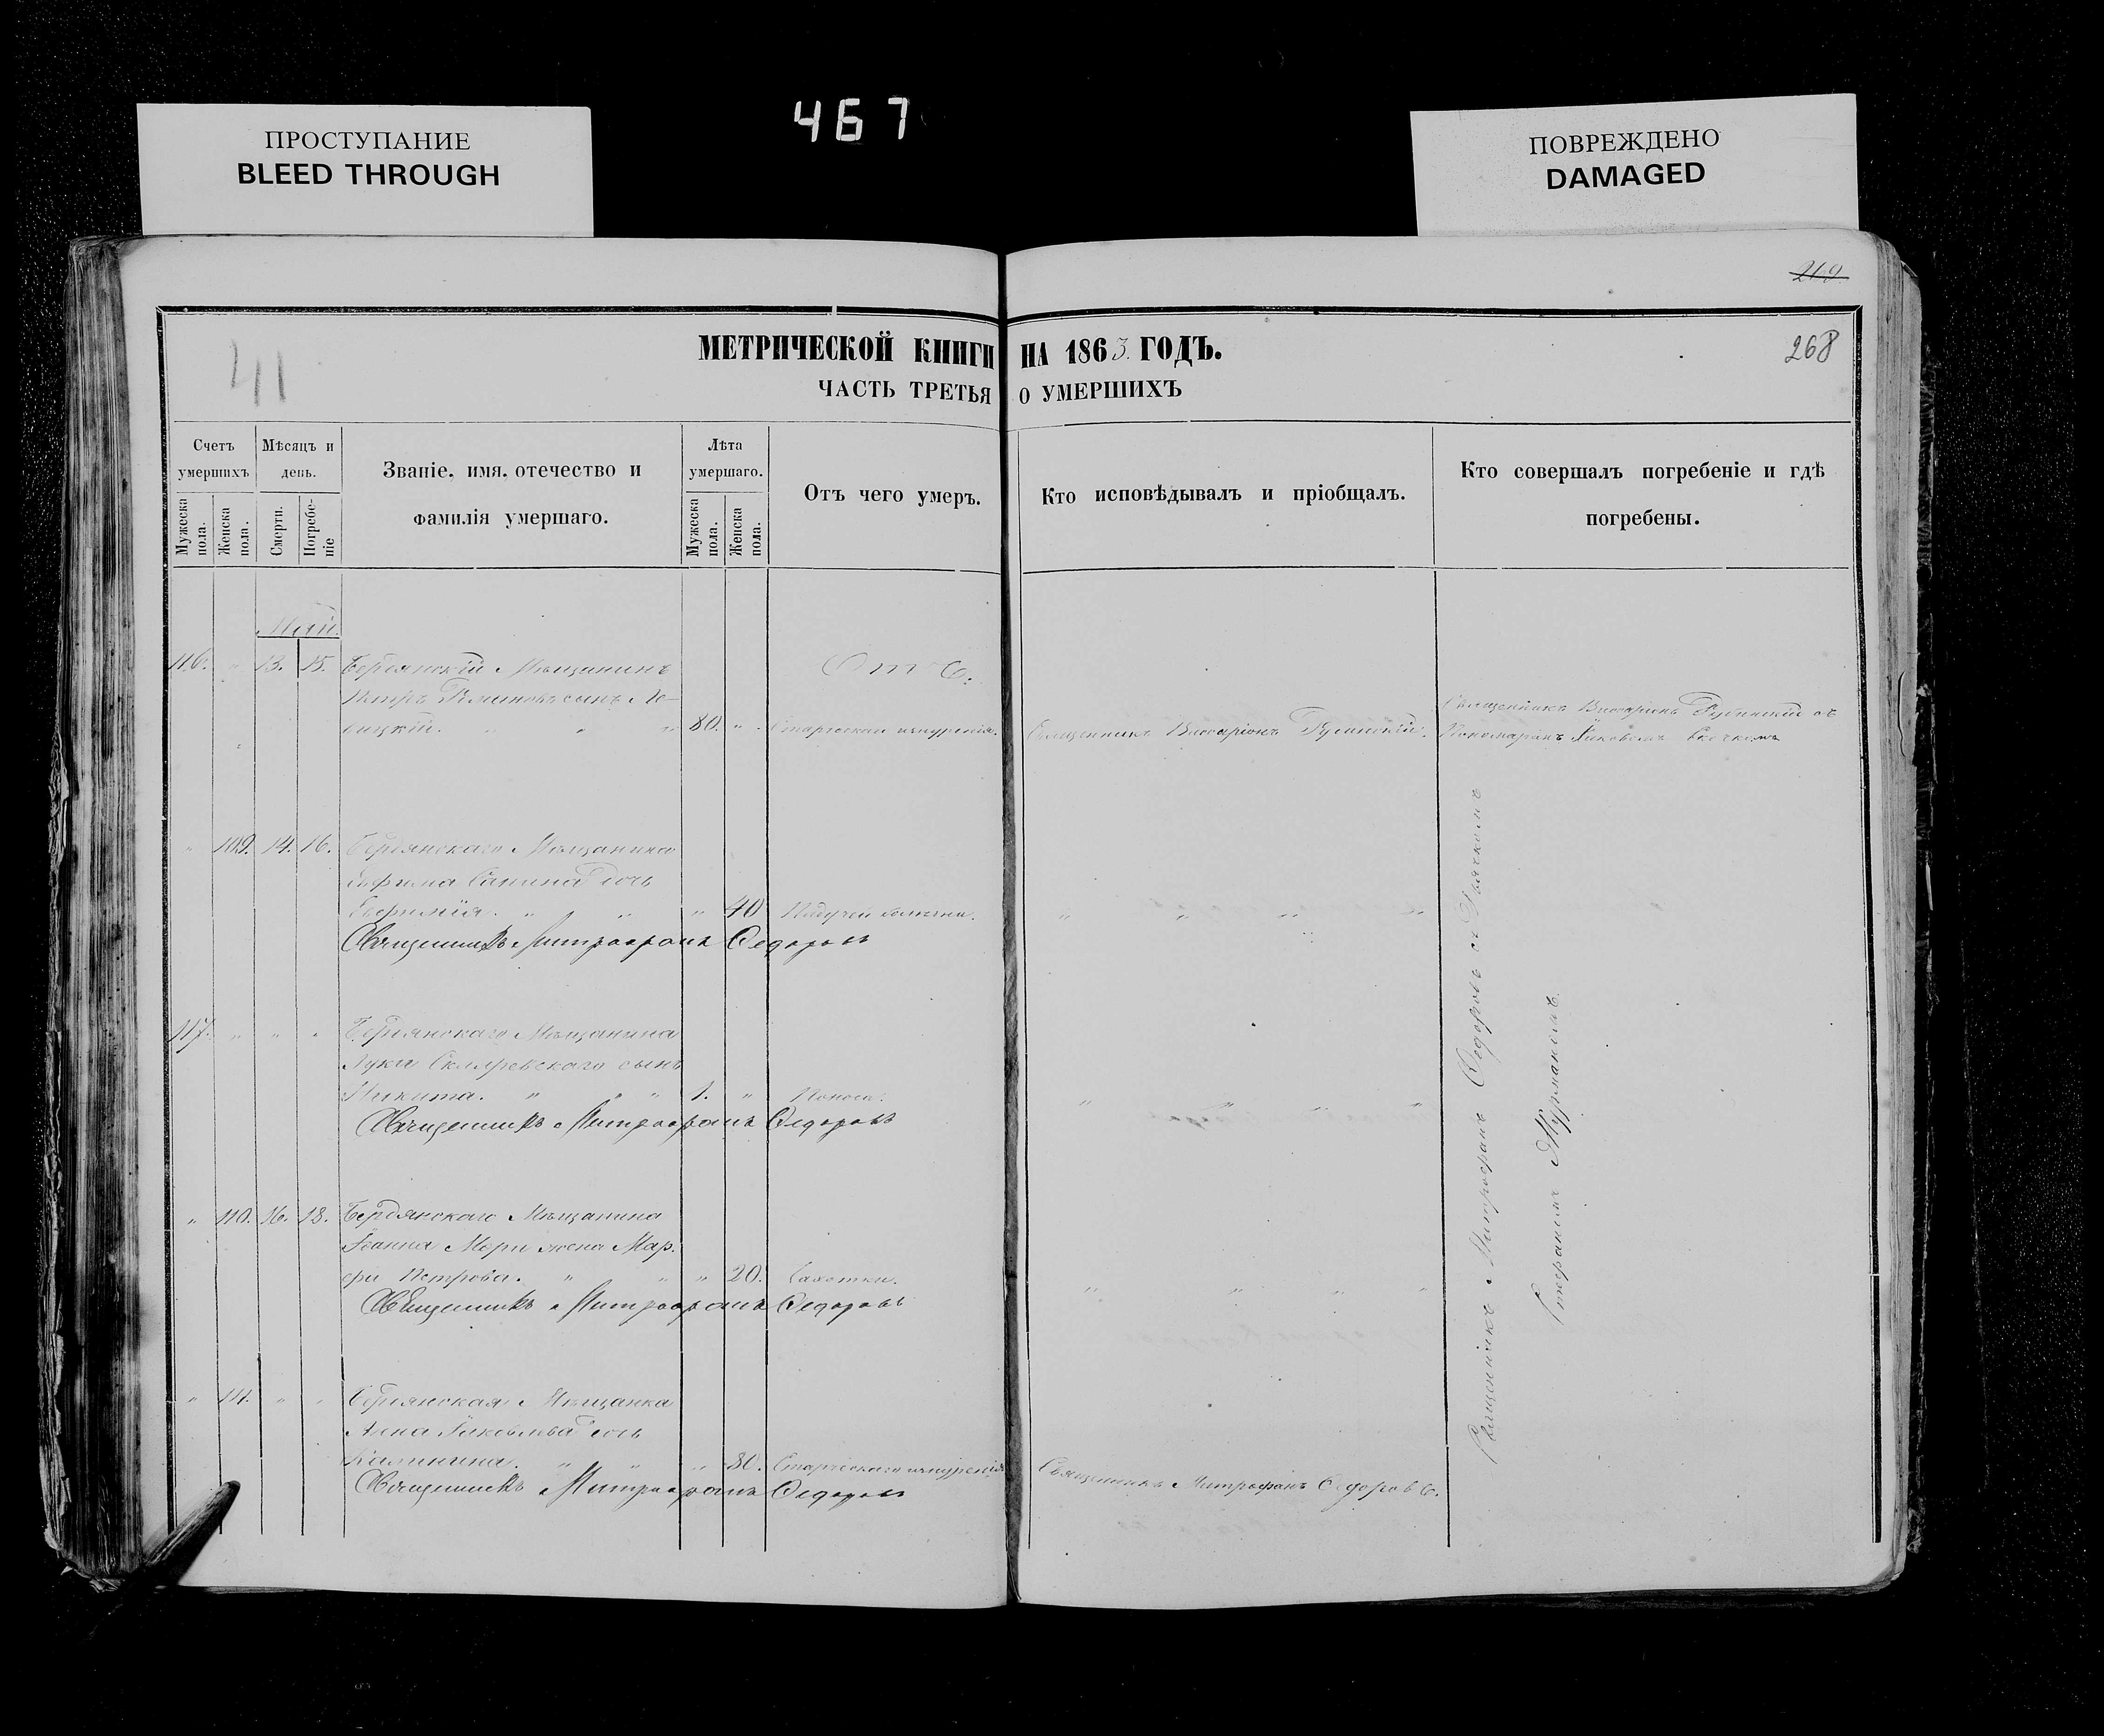 ПРОСТУПАНИЕ
BLEED THROUGH
467
ПОВРЕЖДЕНО
DAMAGED
269
268
41
МЕТРИЧЕСКОЙ КНИГИ НА 1863 ГОДЪ.
ЧАСТЬ ТРЕТЬЯ О УМЕРШИХЪ
Счетъ умершихъ
Мужеска пола.
Женска пола.
Мѣсяцъ и день.
Смерти.
Погребе-ніе
Званіе, имя, отечество и
фамилія умершаго.
Лѣта умершаго.
Мужеска пола.
Женска пола.
Отъ чего умеръ.
Кто исповѣдывалъ и пріобщалъ.
Кто совершалъ погребеніе и гдѣ
погребены.
Май
116. " 13. 15. Бердянскій Мѣщанинъ
Отъ:
Петръ сынъ Ле-
вицкій. " " " 80. " Старческаго изнуренія. Священникъ Виссаріонъ
Священникъ Виссаріонъ съ
Пономаремъ Яковомъ
" 109. 14. 16. Бердянскаго Мѣщанина
Ефима дочь
Евфимія. " " " " 40 Падучей болѣзни. " " " "
Священникъ Митрофанъ Федоровъ
117. " " " Бердянскаго Мѣщанина
Луки Скляревскаго сынъ
Никита. " " " 1. " Поноса. " " " "
Священникъ Митрофанъ Федоровъ
" 110. 16. 18. Бердянскаго Мѣщанина
Іоанна Мори жена Мар-
фа Петрова. " " " 20. Чахотки. " " " "
Священникъ Митрофанъ Федоровъ
" 111. " " Бердянская Мѣщанка
Анна Яковлева дочь
Калинина. " " " 80. Старческаго изнуренія Священникъ Митрофанъ Федоровъ.
Священникъ Митрофанъ Федоровъ
Священникъ Митрофанъ Федоровъ съ Дьячкомъ
Стефаномъ